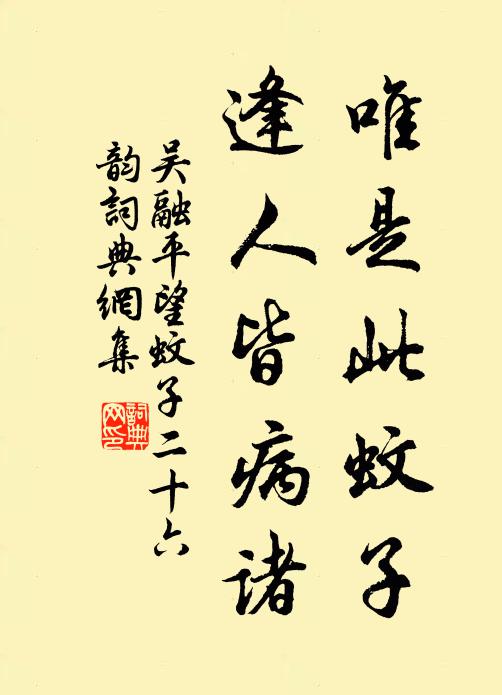 唯是此蚊子
逢人皆病诸
吴融平望蚊子二十六
韵詞典網集
詞典
网印